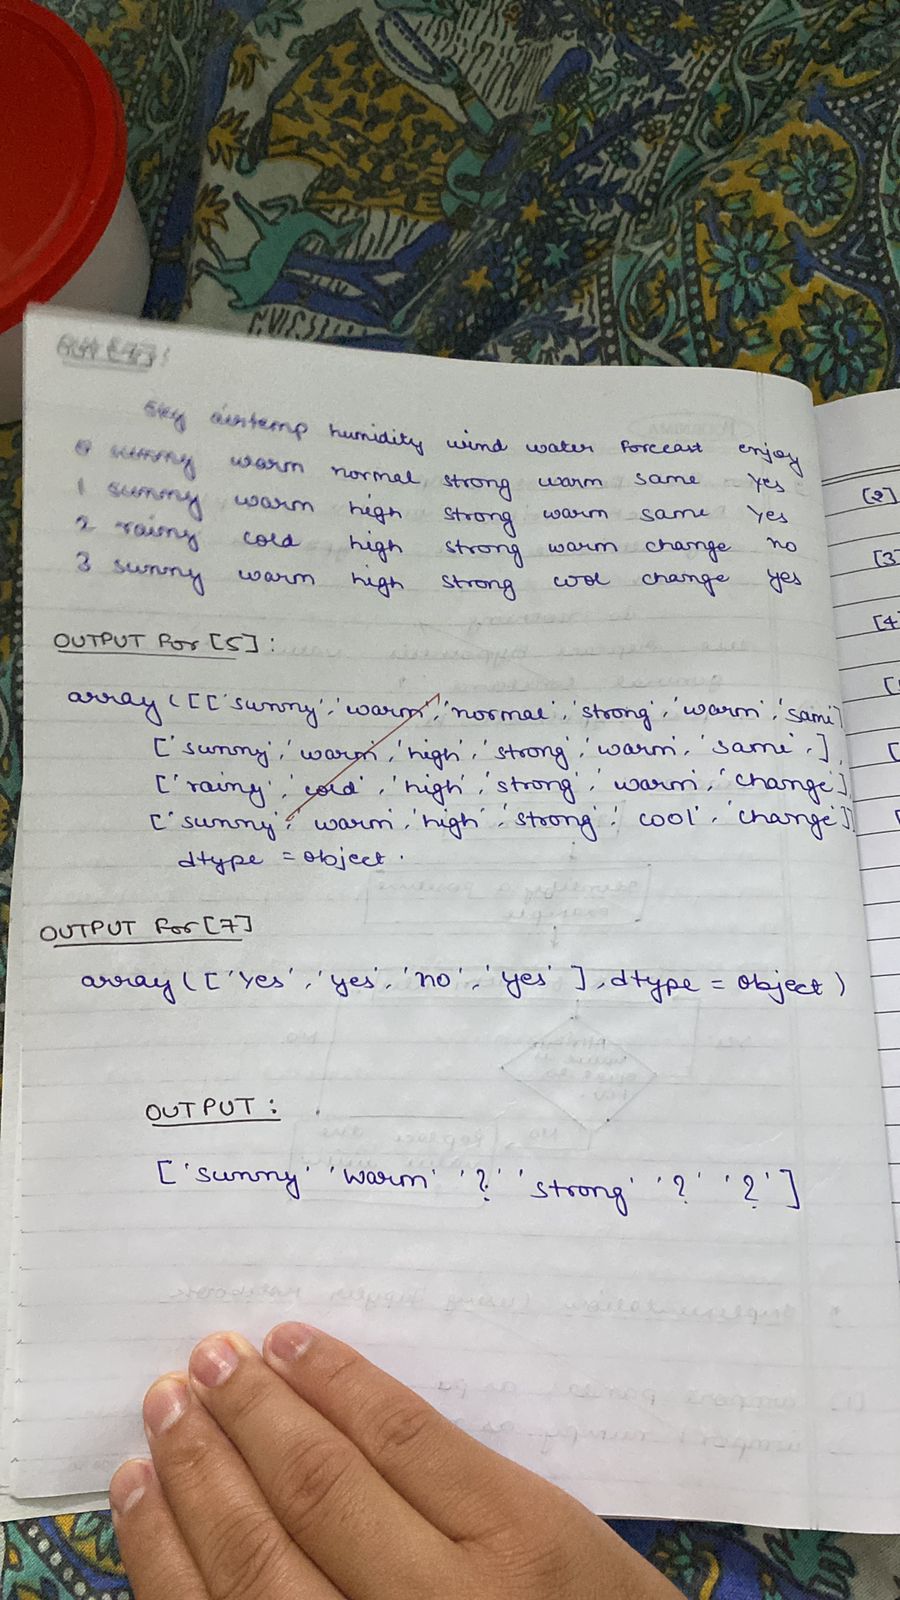 Sky airtemp humidity wind water Forecast enjoy
0 sunny warm normal strong warm same yes
1 sunny warm high strong warm same yes
2 rainy cold high strong warm change no
3 sunny warm high strong cool change yes
OUTPUT For [5] :
array ( [ [ 'sunny', 'warm', 'normal', 'strong', 'warm', 'same' ]
[ 'sunny', 'warm', 'high', 'strong', 'warm', 'same', ]
[ 'rainy', 'cold', 'high', 'strong', 'warm, 'change' ]
[ 'sunny', 'warm, 'high', 'strong', 'cool', 'change' ]
dtype = object.
OUTPUT For [7]
array ( [ 'Yes', 'yes', 'no', 'yes' ], dtype = object )
OUTPUT :
[ 'sunny' 'warm' '?' 'strong' '?' '?' ]
[2]
[3]
[4]